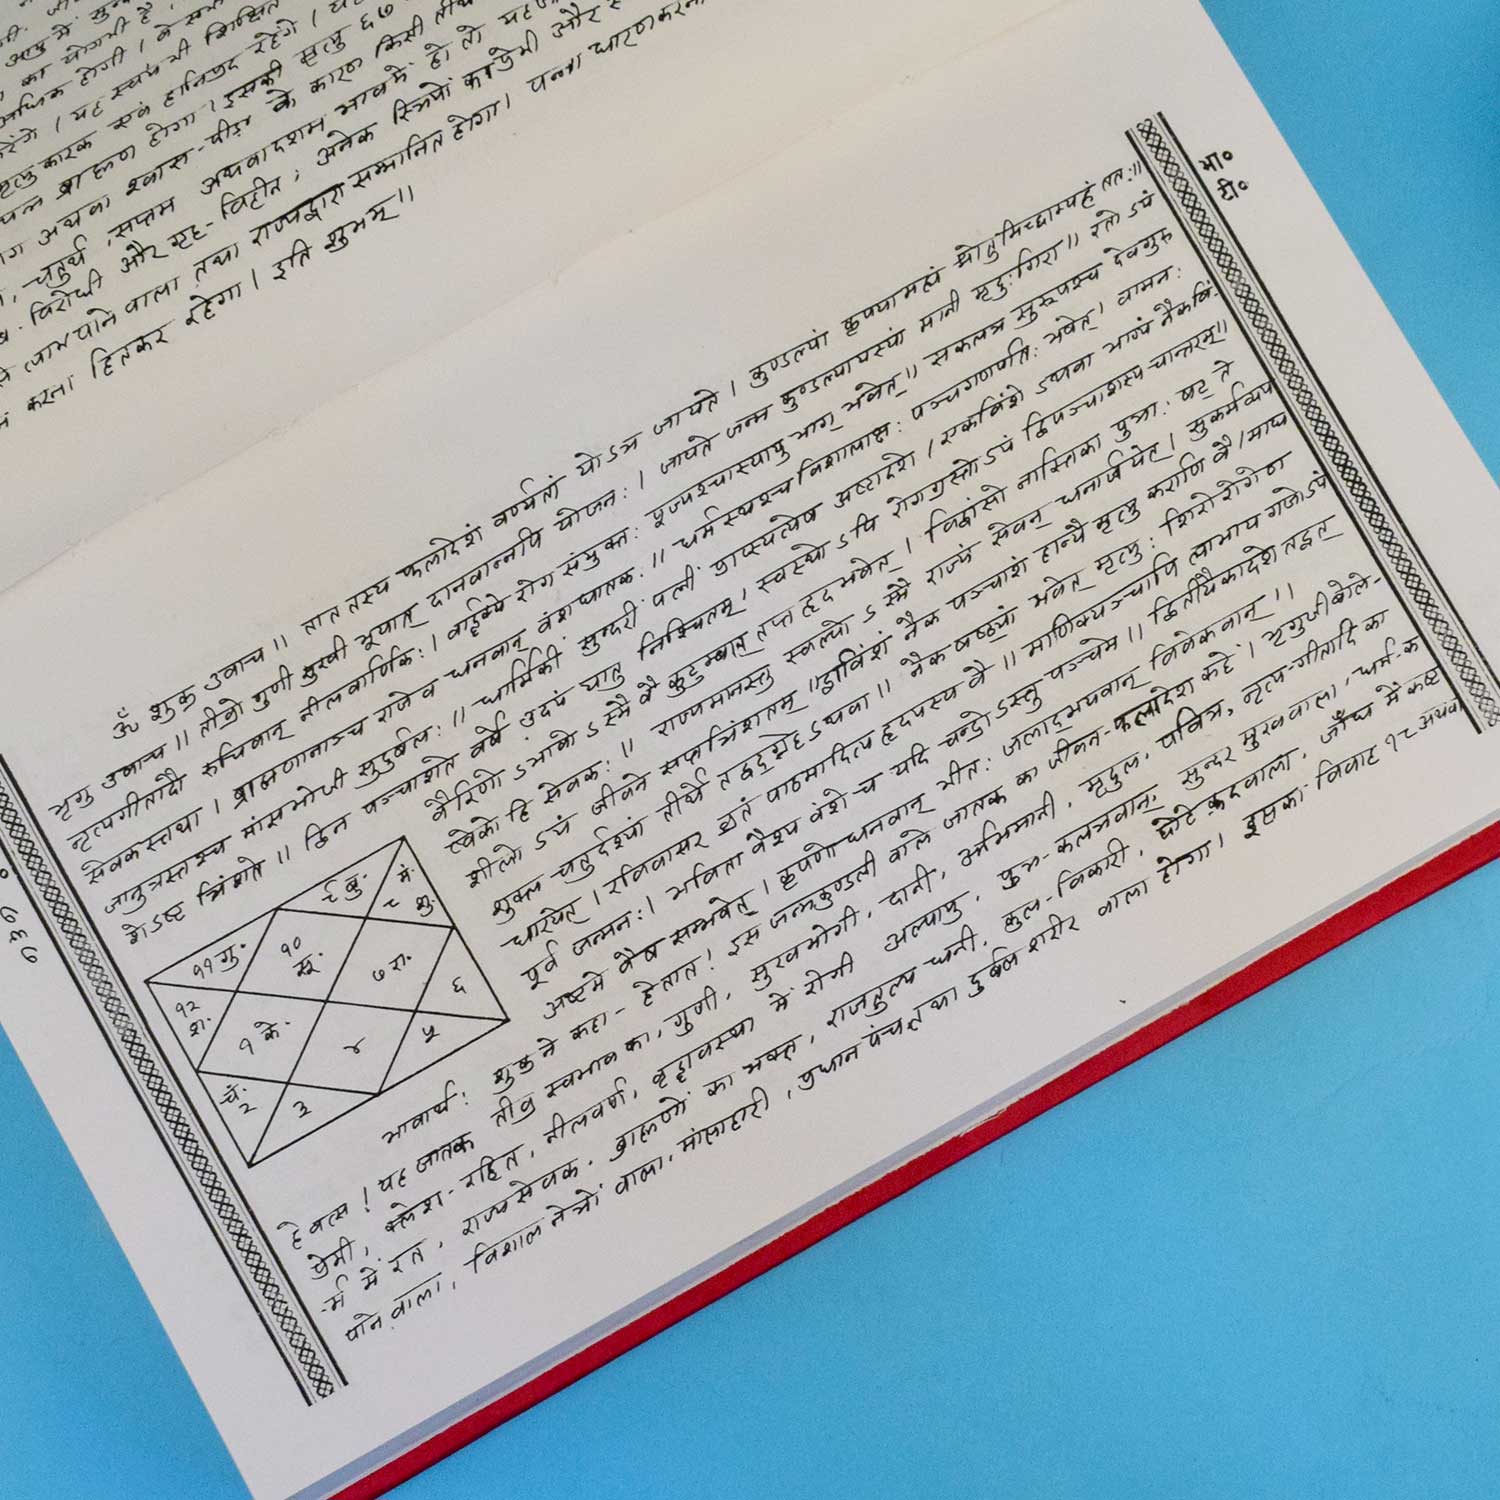 का योगभी है।
अधिक होगी। के
रेंगे। यह स्वयं भी शिक्षित
मृत्यु कारक एवं हानिप्रद रहेंगे।
ब्राह्मण होगा। इसकी मृत्यु ६७
अथवा श्वास-पीड़ा के कारण किसी
चतुर्थ, सप्तम अथवा दशम भाव में हो तो
विरोधी और गृह-विहीन; अनेक स्त्रियों का प्रेमी और
लाभ पाने वाला तथा राज्य द्वारा सम्मानित होगा। पन्ना धारण करना
करना हितकर रहेगा। इति शुभम्॥
भा॰
टी॰
ॐ शुक्र उवाच॥ तात तस्य फलादेशं वर्ण्यतां योऽत्र जायते। कुण्डल्यां कृपया मह्यं श्रोतुमिच्छाम्यहं ततः॥
भृगु उवाच॥ तीव्रो गुणी सुखी भूयात् दानवान्नपि योजनः। जायते जन्म कुण्डल्यायस्यां मानी मृदुःगिरा॥ रतोऽयं
नृत्यगीतादौ रुचिवान् नीलवार्णिकः। वार्द्धक्ये रोग संयुक्तः पूज्यश्चास्यायु भाग् भवेत्॥ सकलत्र सुरूपश्च देवगुरु
सेवकस्तथा। ब्राह्मणानाञ्च राजेव धनवान् वंशघातकः॥ धर्मस्थश्च विशालाक्षः पञ्चगणपतिः भवेत्। वामनः
जानुत्रस्तश्च मांसभोजी सुदुर्बलः॥ धार्मिकी सुन्दरी पत्नी प्राप्स्यत्येष अष्टादशे। एकविंशेऽथवा भाग्यं नैकविं-
शेऽष्ट त्रिंशते॥ द्विन पञ्चाशते वर्षे ध्रुवयं यातु निश्चितम्। स्वस्थोऽपि रोगग्रस्तोऽयं द्विपञ्चाशस्य चान्तरम्॥
वैरिणोऽभावोऽस्मै वै कुटुम्बात् तप्त हृद भवेत्। विद्वांसो नास्तिका पुत्राः षट् ते
त्वेको हि सेवकः॥ राज्यमानस्तु स्वल्पोऽस्मै राज्यं सेवन् धनार्जयेत्। सुकर्मव्यय
शीलोऽयं जीवने सप्तत्रिंशतम्॥ द्वाविंशं नैक पञ्चाशं हान्यै मृत्यु कराणि वै। माघ
शुक्ल चतुर्दश्यां तीर्थे तद्वद्गृहेऽथवा॥ नैक षष्ठ्यां भवेत् मृत्युः शिरोरोगेण
धारयेत्। रविवासर व्रतं पाठमादित्य हृदयस्य वै॥ माणिक्यञ्चापि लाभाय गजोऽयं
पूर्व जन्मनः। भविता वैश्य वंशे च यदि चन्द्रोऽस्तु पञ्चमे॥ द्वितीयैकादशे तद्वत्
अष्टमे वैष सम्भवेत्। कृपणो धनवान् भीतः जलाद्भयवान् विवेकवान्॥
भावार्थः शुक्र ने कहा- हे तात! इस जन्मकुण्डली वाले जातक का जीवन-फलादेश कहें। भृगुजी बोले-
हे वत्स! यह जातक तीव्र स्वभाव का, गुणी, सुखभोगी, दानी, अभिमानी, मृदुल, पवित्र, नृत्य-गीतादि का
प्रेमी, क्लेश-रहित, नीलवर्ण, वृद्धावस्था में रोगी अल्पायु, पुत्र-कलत्रवान, सुन्दर मुखवाला, धर्म-क
-र्म में रत, राज्यसेवक, ब्राह्मणों का भक्त, राजतुल्य धनी, कुल-विकारी, छोटे क़दवाला, जाँघ में कष्ट
पाने वाला, विशाल नेत्रों वाला, मांसाहारी, प्रधान पंचवत् तथा दुर्बल शरीर वाला होगा। इसका विवाह १८ अथवा
११गु॰
९ बु॰
मं॰
८ शु॰
१० सू॰
७ रा॰
१२ श॰
६
१ के॰
४
५
चं॰ २
३
७६७